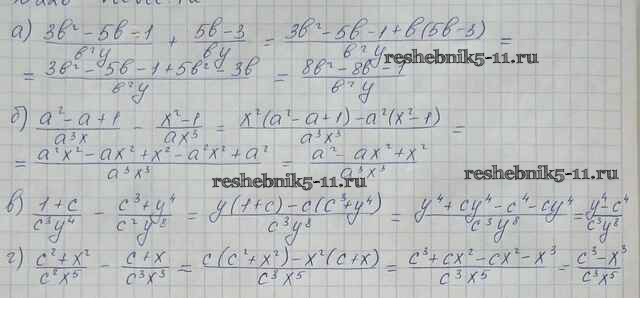 а) (3b² - 5b - 1)/(b²y) + (5b - 3)/(by) = (3b² - 5b - 1 + b(5b - 3))/(b²y) =
= (3b² - 5b - 1 + 5b² - 3b)/(b²y) = (8b² - 8b - 1)/(b²y)
reshebnik5-11.ru
б) (a² - a + 1)/(a³x) - (x² - 1)/(ax³) = (x²(a² - a + 1) - a²(x² - 1))/(a³x³) =
= (a²x² - ax² + x² - a²x² + a²)/(a³x³) = (a² - ax² + x²)/(a³x³)
reshebnik5-11.ru
reshebnik5-11.ru
в) (1 + c)/(c³y⁴) - (c³ + y⁴)/(c²y⁸) = (y(1 + c) - c(c³ + y⁴))/(c³y⁸) = (y⁴ + cy⁴ - c⁴ - cy⁴)/(c³y⁸) = (y⁴ - c⁴)/(c³y⁸)
г) (c² + x²)/(c²x⁵) - (c + x)/(c³x³) = (c(c² + x²) - x²(c + x))/(c³x⁵) = (c³ + cx² - cx² - x³)/(c³x⁵) = (c³ - x³)/(c³x⁵)